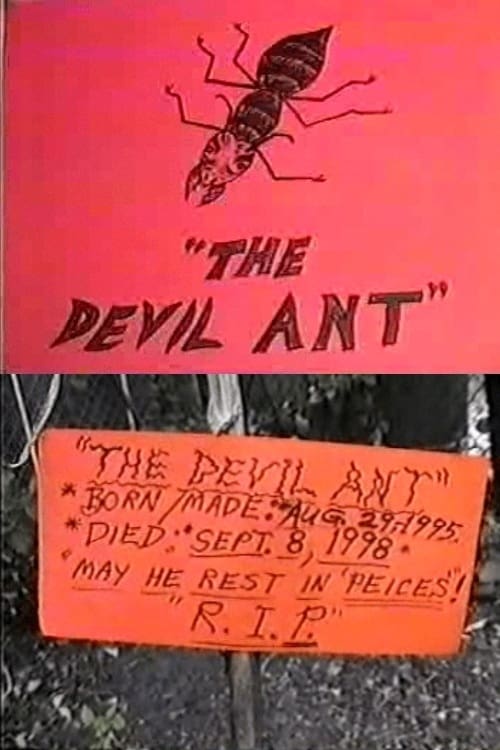 "THE
DEVIL ANT"
"THE DEVIL ANT"
*BORN/MADE: AUG. 29, 1995.
*DIED: SEPT. 8, 1998.
"MAY HE REST IN 'PEICES'!
"R. I. P."